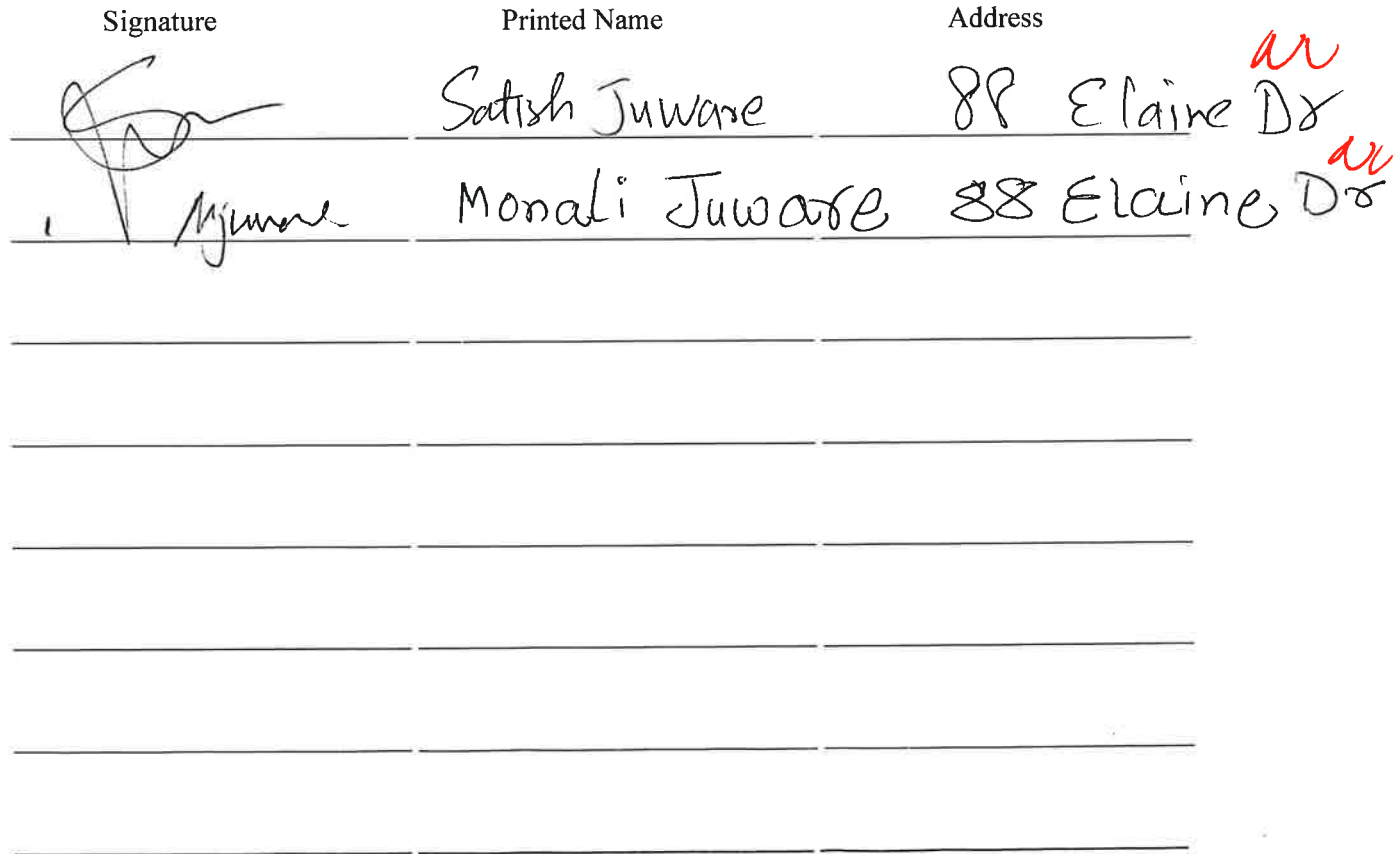 Signature Printed Name Address
Satish Juware 88 Elaine Dr
Mjuware Monali Juware 88 Elaine Dr